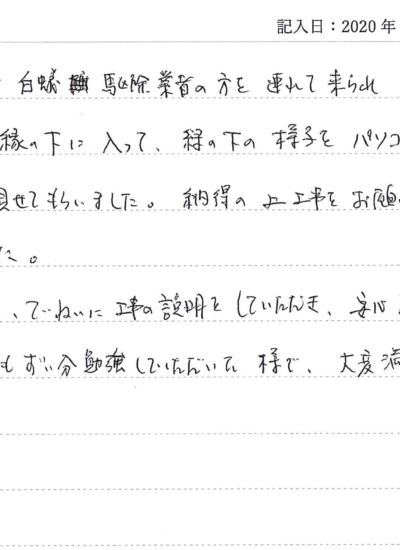 記入日：2020年
白蟻 駆除業者の方を連れて来られ
縁の下に入って、縁の下の様子をパソコ
見せてもらいました。納得の上工事をお願
た。
、ていねいに工事の説明をしていただき、安心
もずい分勉強していただいた様で、大変満